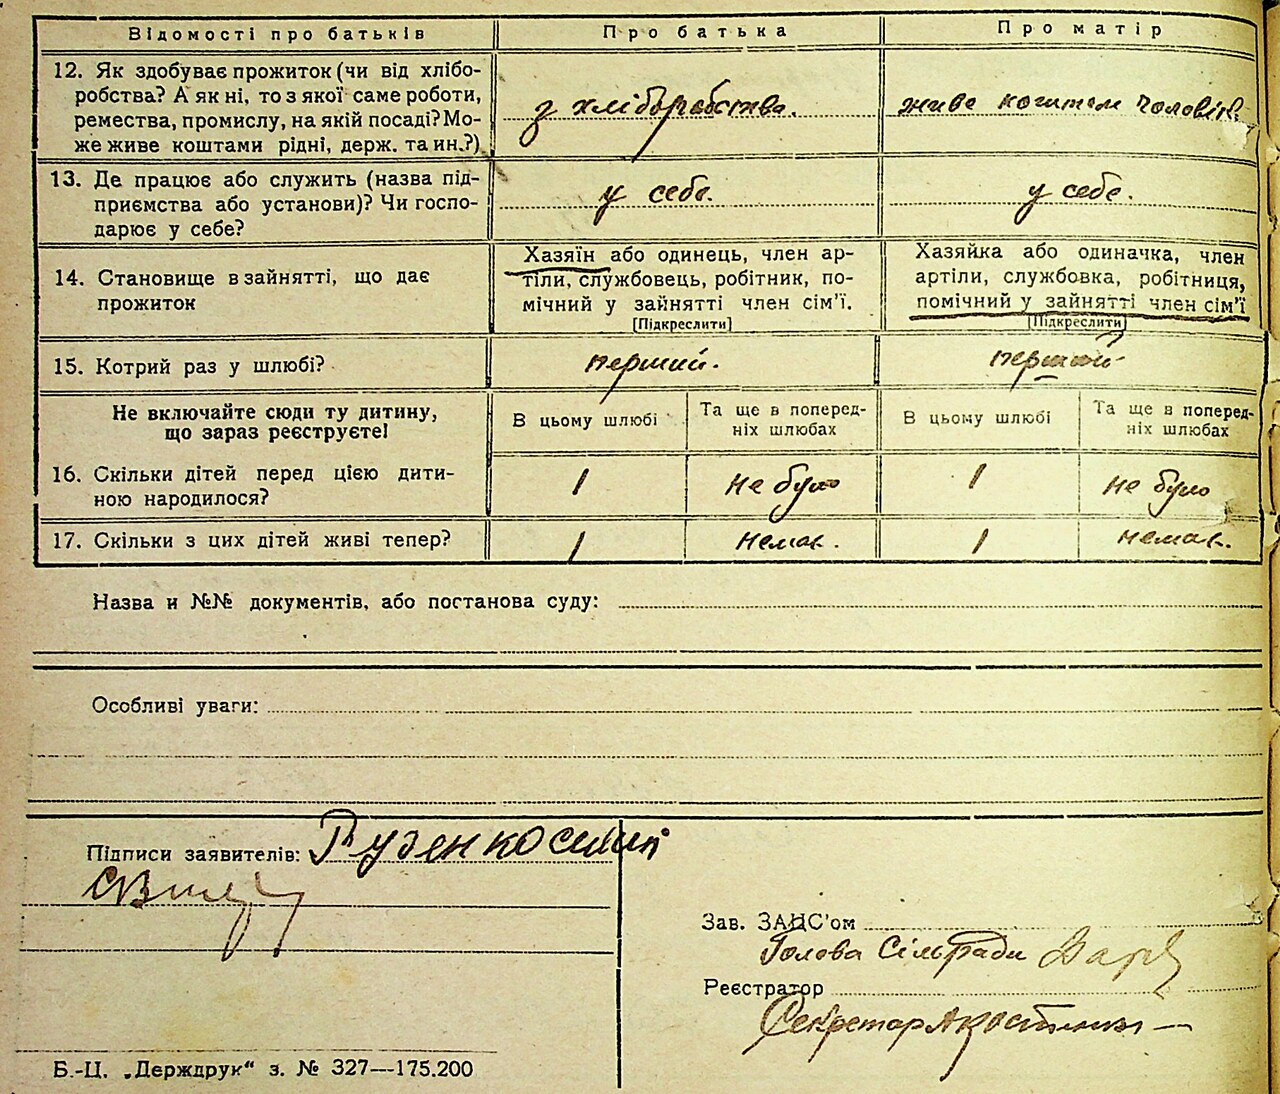 Відомості про батьків
Про батька
Про матір
12. Як здобуває прожиток (чи від хлібо-
робства? А як ні, то з якої саме роботи,
ремества, промислу, на якій посаді? Мо-
же живе коштами рідні, держ. та ин.?)
з хліборобства.
живе коштом чоловіка
13. Де працює або служить (назва під-
приємства або установи)? Чи госпо-
дарює у себе?
у себе.
у себе.
14. Становище в зайнятті, що дає
прожиток
Хазяїн або одинець, член ар-
тіли, службовець, робітник, по-
мічний у зайнятті член сім'ї.
[Підкреслити]
Хазяйка або одиначка, член
артіли, службовка, робітниця,
помічний у зайнятті член сім'ї
[Підкреслити]
15. Котрий раз у шлюбі?
перший.
перший
Не включайте сюди ту дитину,
що зараз реєструєте!
В цьому шлюбі
Та ще в поперед-
ніх шлюбах
В цьому шлюбі
Та ще в поперед-
ніх шлюбах
16. Скільки дітей перед цією дити-
ною народилося?
1
не було
1
не було
17. Скільки з цих дітей живі тепер?
1
немає.
1
немає.
Назва и №№ документів, або постанова суду:
Особливі уваги:
Підписи заявителів:
Зав. ЗАЦС'ом
Голова Сільради
Реєстратор
Секретар
Б.-Ц. „Держдрук“ з. № 327—175.200